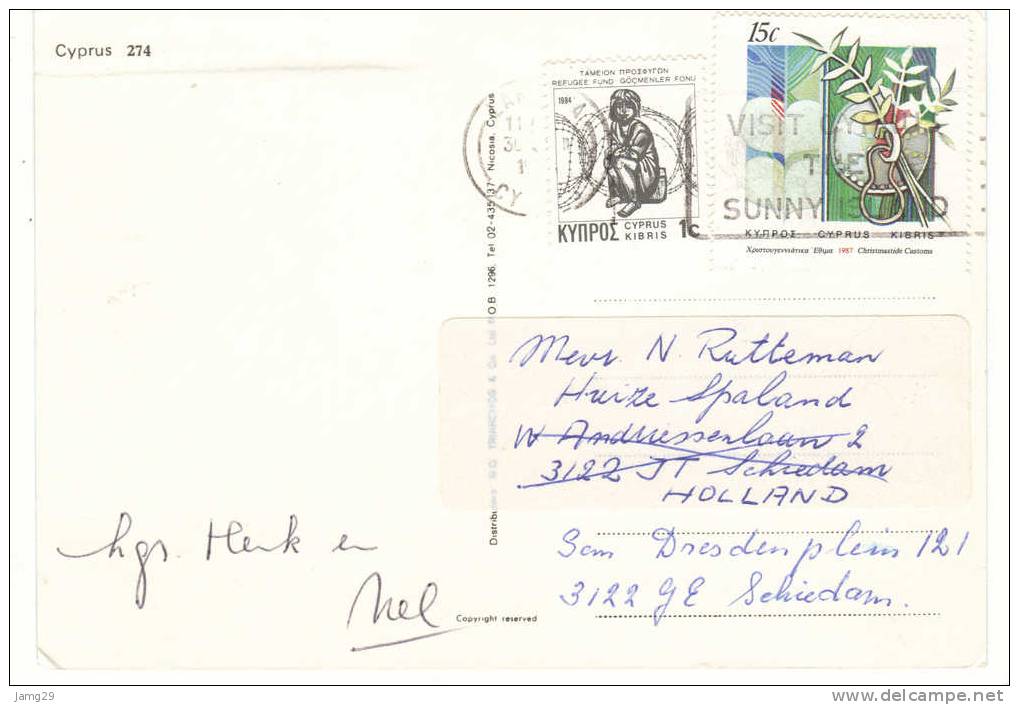 Cyprus 274
15c
ΤΑΜΕΙΟΝ ΠΡΟΣΦΥΓΩΝ
REFUGEE FUND GÖÇMENLER FONU
1984
ΚΥΠΡΟΣ CYPRUS KIBRIS 1c
VISIT
THE
SUNNY ISLAND
ΚΥΠΡΟΣ CYPRUS KIBRIS
Χριστουγεννιάτικα Έθιμα 1987 Christmastide Customs
O.B 1296. Tel 02-435137 Nicosia, Cyprus
Mevr. N. Rutteman
Huize Spaland
W Andriessenlaan 2
3122 JT Schiedam
HOLLAND
Sam Dresdenplein 121
3122 GE Schiedam.
hgr. Henk en
Nel
Copyright reserved
Jamg29
www.delcampe.net